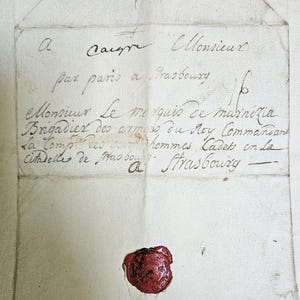 A Monsieur
par paris a Strasbourg
Monsieur Le marquis de
Brigadier des armées du Roy Commandant
La Comp des hommes Cadets en La
Citadelles de Strasbourg
A Strasbourg